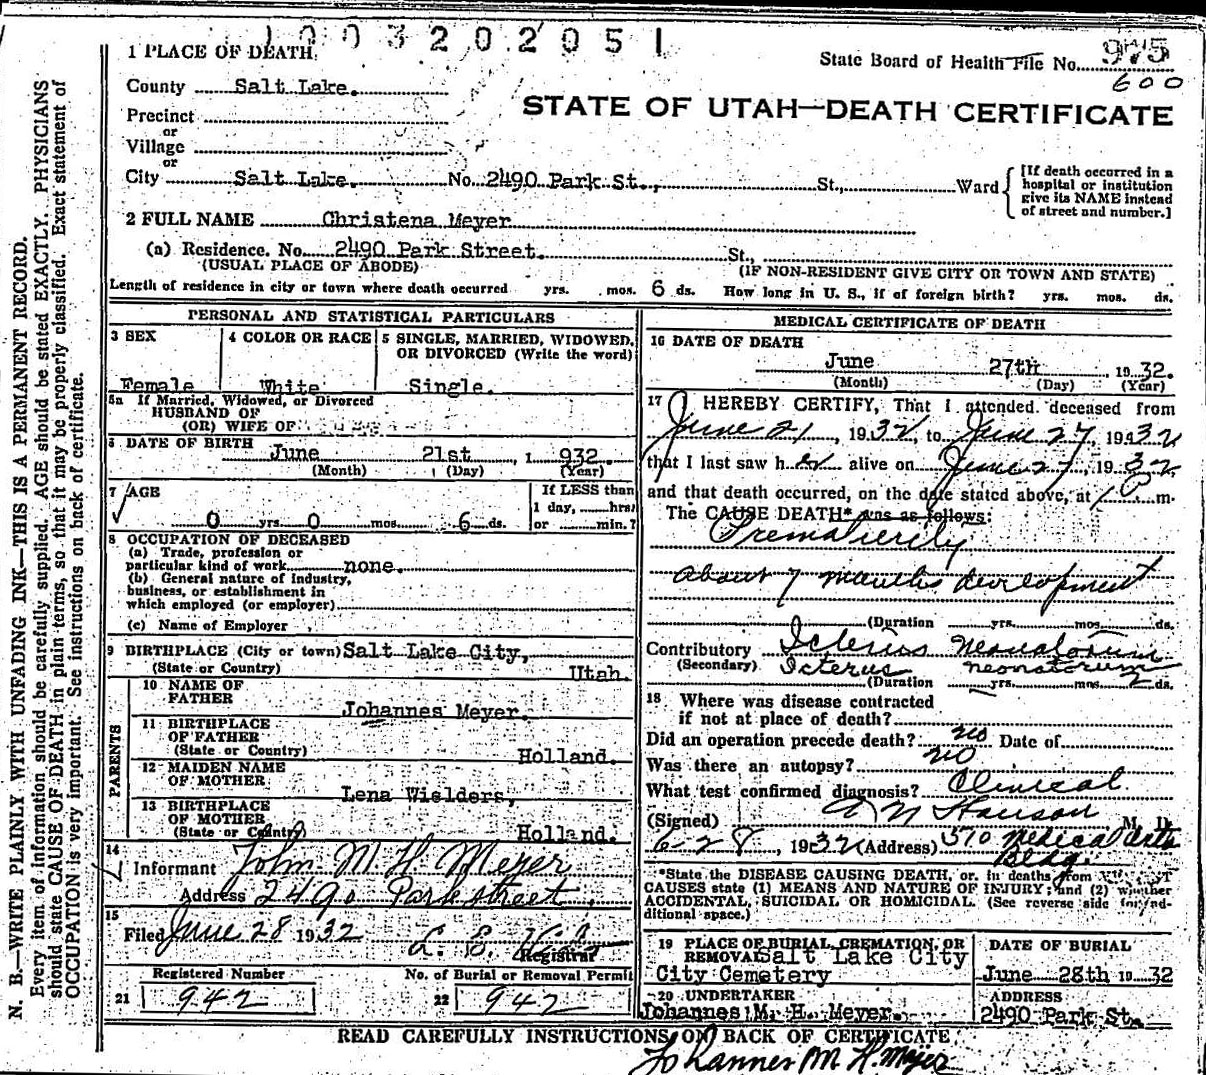 1003202051
1 PLACE OF DEATH
State Board of Health File No. 975
600
County Salt Lake.
STATE OF UTAH—DEATH CERTIFICATE
Precinct
or
Village
or
City Salt Lake. No. 2490 Park St., St., Ward
[If death occurred in a
hospital or institution
give its NAME instead
of street and number.]
2 FULL NAME Christena Meyer
(a) Residence. No. 2490 Park Street. St.,
(USUAL PLACE OF ABODE) (IF NON-RESIDENT GIVE CITY OR TOWN AND STATE)
Length of residence in city or town where death occurred yrs. mos. 6 ds. How long in U. S., if of foreign birth? yrs. mos. ds.
PERSONAL AND STATISTICAL PARTICULARS
3 SEX
Female
4 COLOR OR RACE
White
5 SINGLE, MARRIED, WIDOWED,
OR DIVORCED (Write the word)
Single.
5a If Married, Widowed, or Divorced
HUSBAND OF
(OR) WIFE OF
6 DATE OF BIRTH June 21st, 1 932.
(Month) (Day) (Year)
7 AGE
If LESS than
1 day, hrs.
0 yrs. 0 mos. 6 ds. or min.?
8 OCCUPATION OF DECEASED
(a) Trade, profession or
particular kind of work none.
(b) General nature of industry,
business, or establishment in
which employed (or employer)
(c) Name of Employer
9 BIRTHPLACE (City or town) Salt Lake City,
(State or Country) Utah.
PARENTS
10 NAME OF
FATHER Johannes Meyer.
11 BIRTHPLACE
OF FATHER
(State or Country) Holland.
12 MAIDEN NAME
OF MOTHER Lena Wielders,
13 BIRTHPLACE
OF MOTHER
(State or Country) Holland.
14
Informant John M H Meyer
Address 2490 Park street.
15
Filed June 28 1932
Registrar
Registered Number
21 942
No. of Burial or Removal Permit
22 942
MEDICAL CERTIFICATE OF DEATH
16 DATE OF DEATH
June 27th 19 32.
(Month) (Day) (Year)
17 I HEREBY CERTIFY, That I attended deceased from
June 21, 1932, to June 27, 1932
that I last saw her alive on June 27, 1932
and that death occurred, on the date stated above, at 1 P m.
The CAUSE DEATH* was as follows:
Prematurity
about 7 months development
(Duration yrs. mos. ds.
Contributory Icterus Neonatorum
(Secondary) Icterus neonatorum
(Duration yrs. mos. 2 ds.
18 Where was disease contracted
if not at place of death?
Did an operation precede death? no Date of
Was there an autopsy? no
What test confirmed diagnosis? Clinical
(Signed) A N Hanson M. D.
6-28, 1932 (Address) 510 Medical Arts
Bldg.
*State the DISEASE CAUSING DEATH, or, in deaths from
CAUSES state (1) MEANS AND NATURE OF INJURY; and (2) whether
ACCIDENTAL, SUICIDAL OR HOMICIDAL. (See reverse side for ad-
ditional space.)
19 PLACE OF BURIAL, CREMATION, OR
REMOVAL Salt Lake City
City Cemetery
DATE OF BURIAL
June 28th 19 32
20 UNDERTAKER
Johannes M. H. Meyer.
ADDRESS
2490 Park St.
READ CAREFULLY INSTRUCTIONS ON BACK OF CERTIFICATE
Johannes M H Meijer
N. B.—WRITE PLAINLY WITH UNFADING INK—THIS IS A PERMANENT RECORD.
Every item of information should be carefully supplied. AGE should be stated EXACTLY. PHYSICIANS
should state CAUSE OF DEATH in plain terms, so that it may be properly classified. Exact statement of
OCCUPATION is very important. See instructions on back of certificate.